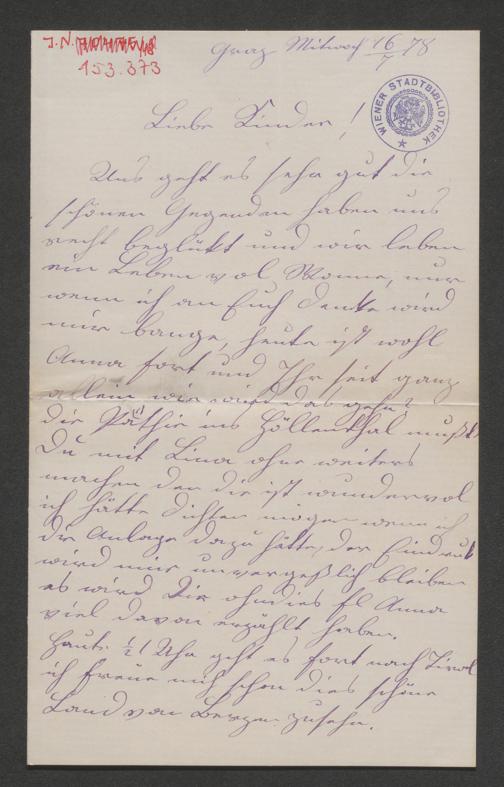 J.N.
153.373
Graz Mitwoch 16/7 78
WIENER STADTBIBLIOTHEK
Liebe Kinder!
Uns geht es sehr gut die
schönen Gegenden haben uns
recht beglükt und wir leben
ein Leben vol Wonne, nur
wenn ich an Euch denke wird
mir bange, heute ist wohl
Anna fort und Ihr seit ganz
allein wie wird das gehn?
die Päthie ins Höllenthal mußt
Du mit Lina ohne weiters
machen den die ist wundervol
ich hätte dichten mögen wenn ich
die Anlage dazu hätte, der Eindruk
wird mir unvergeßlich bleiben
es wird Dir ohndies fl Anna
viel davon erzählt haben.
Heute ½ 1 Uhr geht es fort nach Tirol
ich freue mich schon dies schöne
Land von Berge zusehn.